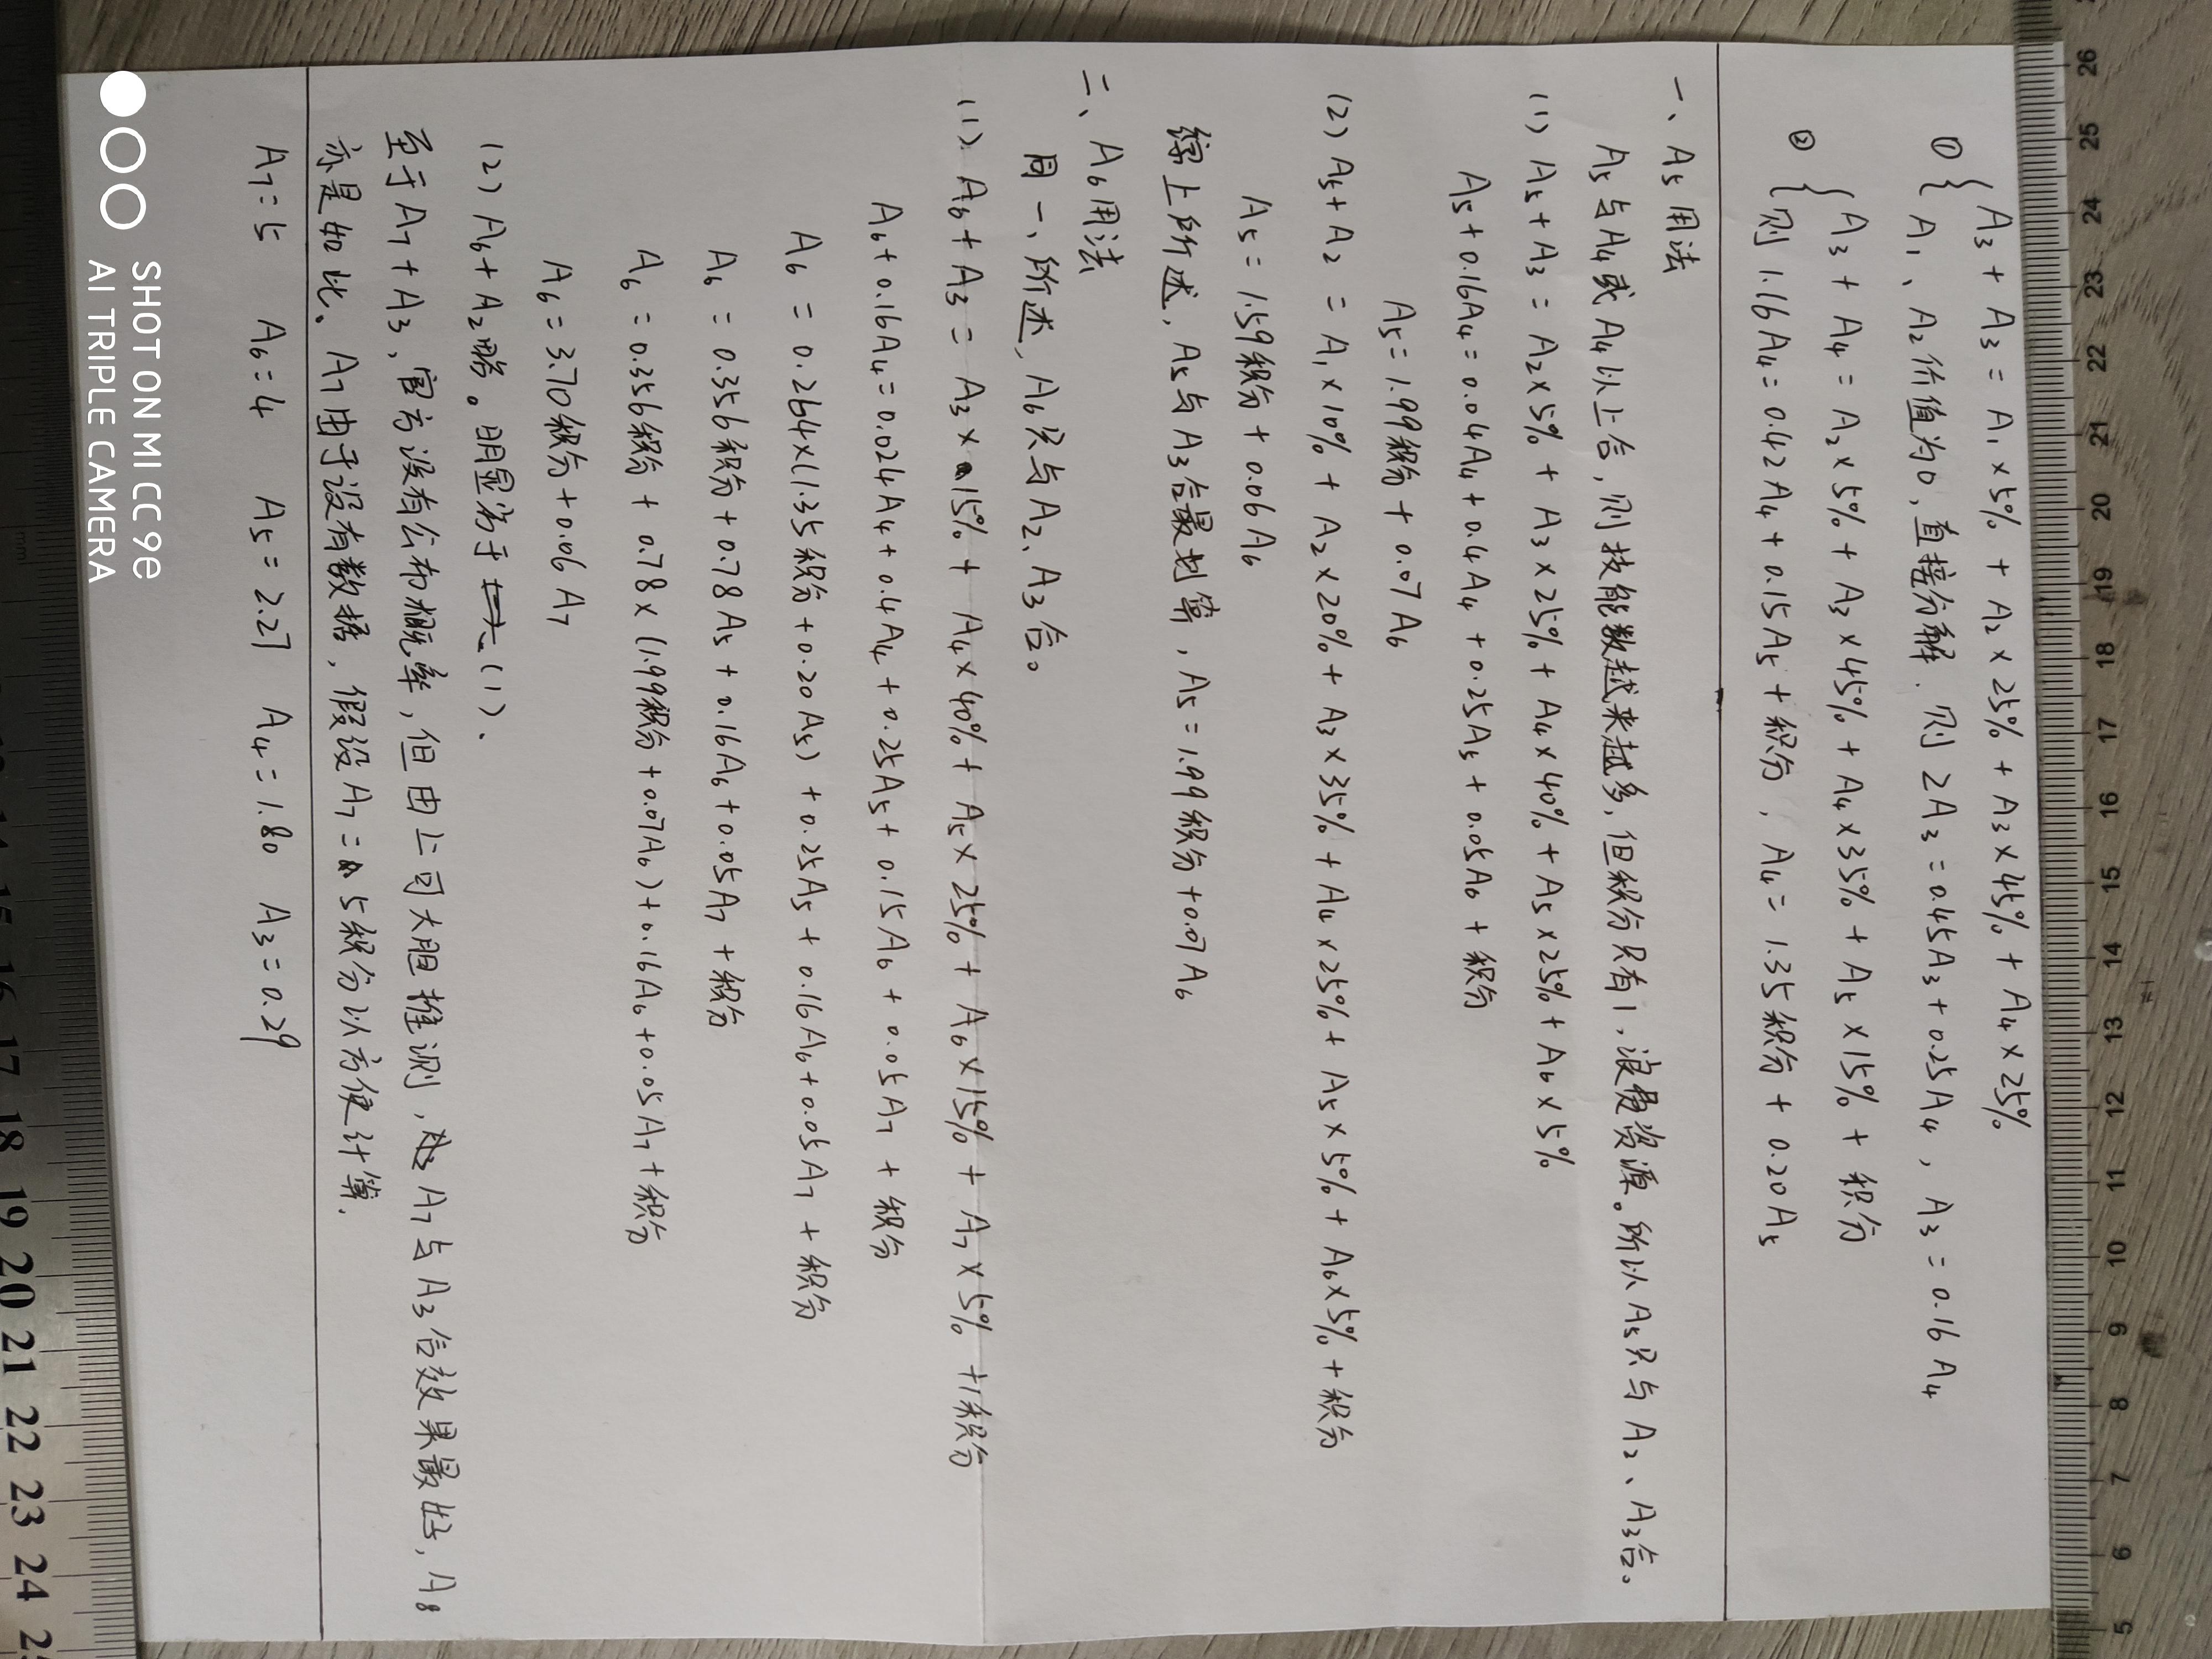 ① { A₃ + A₃ = A₁ × 5% + A₂ × 25% + A₃ × 45% + A₄ × 25%
A₁、A₂价值为0,直接分解. 则 2A₃ = 0.45A₃ + 0.25A₄, A₃ = 0.16A₄
② { A₃ + A₄ = A₂ × 5% + A₃ × 45% + A₄ × 35% + A₅ × 15% + 积分
则 1.16A₄ = 0.42A₄ + 0.15A₅ + 积分, A₄ = 1.35积分 + 0.20A₅
一、A₅用法
A₅与A₄或A₄以上合,则技能数越来越多,但积分只有1,浪费资源。所以A₅只与A₂、A₃合。
(1) A₅ + A₃ = A₂ × 5% + A₃ × 25% + A₄ × 40% + A₅ × 25% + A₆ × 5%
A₅ + 0.16A₄ = 0.04A₄ + 0.4A₄ + 0.25A₅ + 0.05A₆ + 积分
A₅ = 1.99积分 + 0.07A₆
(2) A₅ + A₂ = A₁ × 10% + A₂ × 20% + A₃ × 35% + A₄ × 25% + A₅ × 5% + A₆ × 5% + 积分
A₅ = 1.59积分 + 0.06A₆
综上所述,A₅与A₃合最划算,A₅ = 1.99积分 + 0.07A₆
二、A₆用法
同一、所述,A₆只与A₂、A₃合。
(1) A₆ + A₃ = A₃ × 15% + A₄ × 40% + A₅ × 25% + A₆ × 15% + A₇ × 5% + 1积分
A₆ + 0.16A₄ = 0.024A₄ + 0.4A₄ + 0.25A₅ + 0.15A₆ + 0.05A₇ + 积分
A₆ = 0.264×(1.35积分 + 0.20A₅) + 0.25A₅ + 0.16A₆ + 0.05A₇ + 积分
A₆ = 0.356积分 + 0.78A₅ + 0.16A₆ + 0.05A₇ + 积分
A₆ = 0.356积分 + 0.78 × (1.99积分 + 0.07A₆) + 0.16A₆ + 0.05A₇ + 积分
A₆ = 3.70积分 + 0.06A₇
(2) A₆ + A₂略。明显劣于(1).
至于A₇ + A₃,官方没有公布概率,但由上可大胆推测,A₇与A₃合效果最好,A₈
亦是如此. A₇由于没有数据,假设A₇ = 5积分以方便计算.
A₇ = 5 A₆ = 4 A₅ = 2.27 A₄ = 1.80 A₃ = 0.29
SHOT ON MI CC 9e
AI TRIPLE CAMERA
26 25 24 23 22 21 20 19 18 17 16 15 14 13 12 11 10 9 8 7 6 5
15 16 17 18 19 20 21 22 23 24